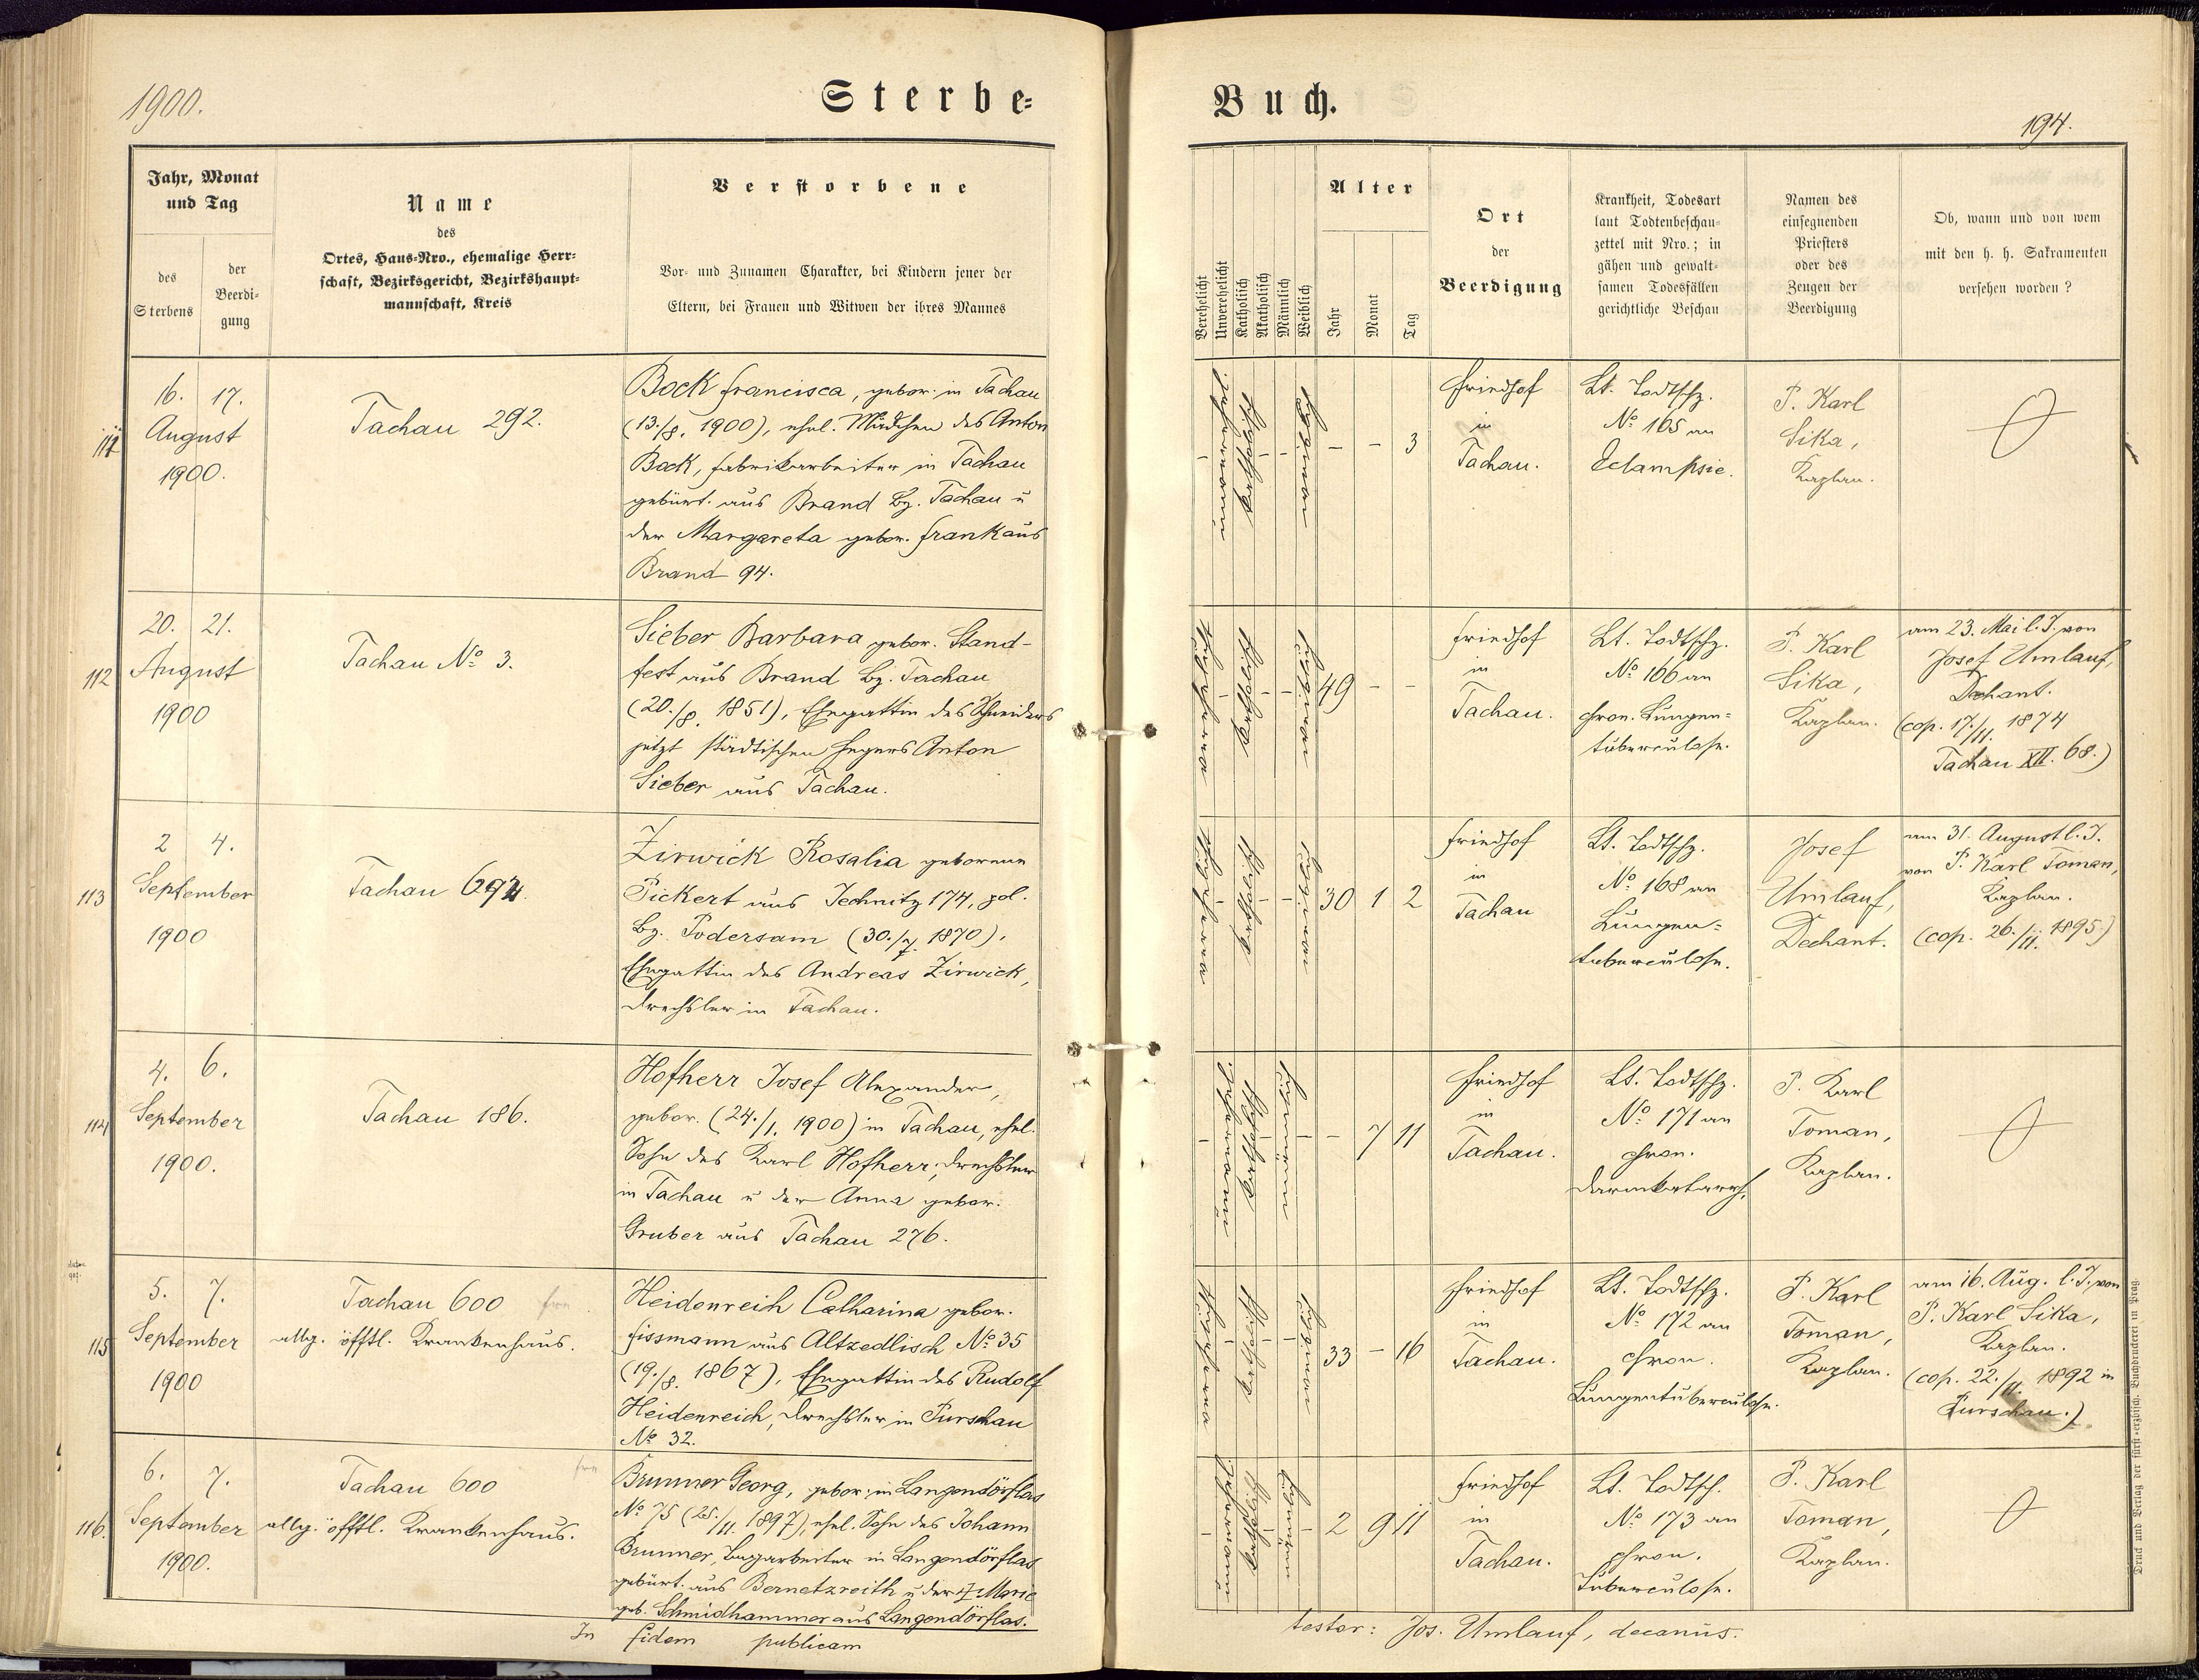 1900.
Sterbe-
Buch.
194.
Jahr, Monat
und Tag
des
Sterbens
der
Beerdi-
gung
Name
des
Ortes, Haus-Nro., ehemalige Herr-
schaft, Bezirksgericht, Bezirkshaupt-
mannschaft, Kreis
Verstorbene
Vor- und Zunamen Charakter, bei Kindern jener der
Eltern, bei Frauen und Witwen der ihres Mannes
Verehelicht
Unverehelicht
Katholisch
Akatholisch
Männlich
Weiblich
Alter
Jahr
Monat
Tag
Ort
der
Beerdigung
Krankheit, Todesart
laut Todtenbeschau-
zettel mit Nro.; in
gähen und gewalt-
samen Todesfällen
gerichtliche Beschau
Namen des
einsegnenden
Priesters
oder des
Zeugen der
Beerdigung
Ob, wann und von wem
mit den h. h. Sakramenten
versehen worden?
111
16. 17.
August
1900.
Tachau 292.
Bock Francisca, gebor. in Tachau
(13./8. 1900), ehel. Mädchen des Anton
Bock, Fabrikarbeiter in Tachau
gebürt. aus Brand Bz. Tachau u
der Margareta gebor. Frank aus
Brand 94.
unverehelicht
katholisch
weiblich
- - 3
Friedhof
in
Tachau.
Lt. Todtschz.
No 165 an
Eclampsie.
P. Karl
Sika,
Kaplan.
112
20. 21.
August
1900
Tachau No 3.
Sieber Barbara gebor. Stand-
fest aus Brand Bz. Tachau
(20./8. 1851), Ehegattin des Schneiders
jetzt städtischen Hegers Anton
Sieber aus Tachau.
verehelicht
katholisch
weiblich
49 - -
Friedhof
in
Tachau.
Lt. Todtschz.
No 166 an
chron. Lungen-
tuberculose.
P. Karl
Sika,
Kaplan.
am 23. Mai l. J. von
Josef Umlauf,
Dechant.
(cop. 17./11. 1874
Tachau XII. 68.)
113
2 4.
September
1900
Tachau 694
Zirwick Rosalia geborene
Pickert aus Jechnitz 174, pol.
Bz. Podersam (30./7. 1870),
Ehegattin des Andreas Zirwick,
Drechsler in Tachau.
verehelicht
katholisch
weiblich
30 1 2
Friedhof
in
Tachau
Lt. Todtschz.
No 168 an
Lungen-
tuberculose.
Josef
Umlauf,
Dechant.
am 31. August l. J.
von P. Karl Toman,
Kaplan.
(cop. 26./11. 1895)
114
4. 6.
September
1900.
Tachau 186.
Hofherr Josef Alexander,
gebor. (24./1. 1900) in Tachau, ehel.
Sohn des Karl Hofherr, Drechsler
in Tachau u der Anna gebor.
Gruber aus Tachau 276.
unverehelicht
katholisch
männlich
- 7 11
Friedhof
in
Tachau.
Lt. Todtschz.
No 171 an
chron.
Darmkatarrh.
P. Karl
Toman,
Kaplan.
115
5. 7.
September
1900
Tachau 600
allg. öfftl. Krankenhaus.
Heidenreich Catharina gebor.
Fissmann aus Altzedlisch No 35
(19./8. 1867), Ehegattin des Rudolf
Heidenreich, Drechsler in Purschau
No 32.
verehelicht
katholisch
weiblich
33 - 16
Friedhof
in
Tachau.
Lt. Todtschz.
No 172 an
chron.
Lungentuberculose.
P. Karl
Toman,
Kaplan.
am 16. Aug. l. J. von
P. Karl Sika,
Kaplan.
(cop. 22./11. 1892 in
Purschau.)
116.
6. 7.
September
1900.
Tachau 600
allg. öfftl. Krankenhaus.
Brunner Georg, gebor. in Langendörflas
No 75 (25./11. 1897), ehel. Sohn des Johann
Brunner, Bagarbeiter in Langendörflas
gebürt. aus Bernetzreith u der † Marie
geb. Schmidhammer aus Langendörflas.
unverehelicht
katholisch
männlich
2 9 11
Friedhof
in
Tachau.
Lt. Todtsch.
No 173 an
chron.
Tuberculose.
P. Karl
Toman,
Kaplan.
In fidem publicam
testor: Jos. Umlauf, decanus.
Druck und Verlag der fürst-erzbisch. Buchdruckerei in Prag.